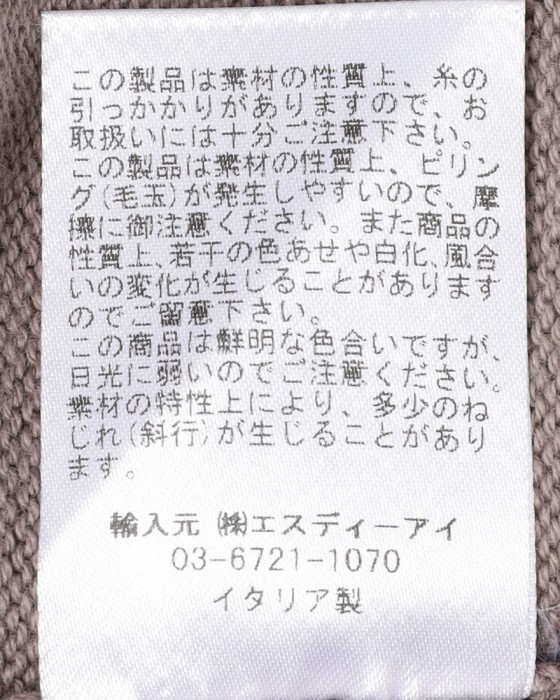 この製品は素材の性質上、糸の
引っかかりがありますので、お
取扱いには十分ご注意下さい。
この製品は素材の性質上、ピリン
グ(毛玉)が発生しやすいので、摩
擦に御注意ください。また商品の
性質上、若干の色あせや白化、風合
いの変化が生じることがあります
のでご留意下さい。
この商品は鮮明な色合いですが、
日光に弱いのでご注意ください。
素材の特性上により、多少のね
じれ(斜行)が生じることがあり
ます。
輸入元 ㈱エスディーアイ
03-6721-1070
イタリア製